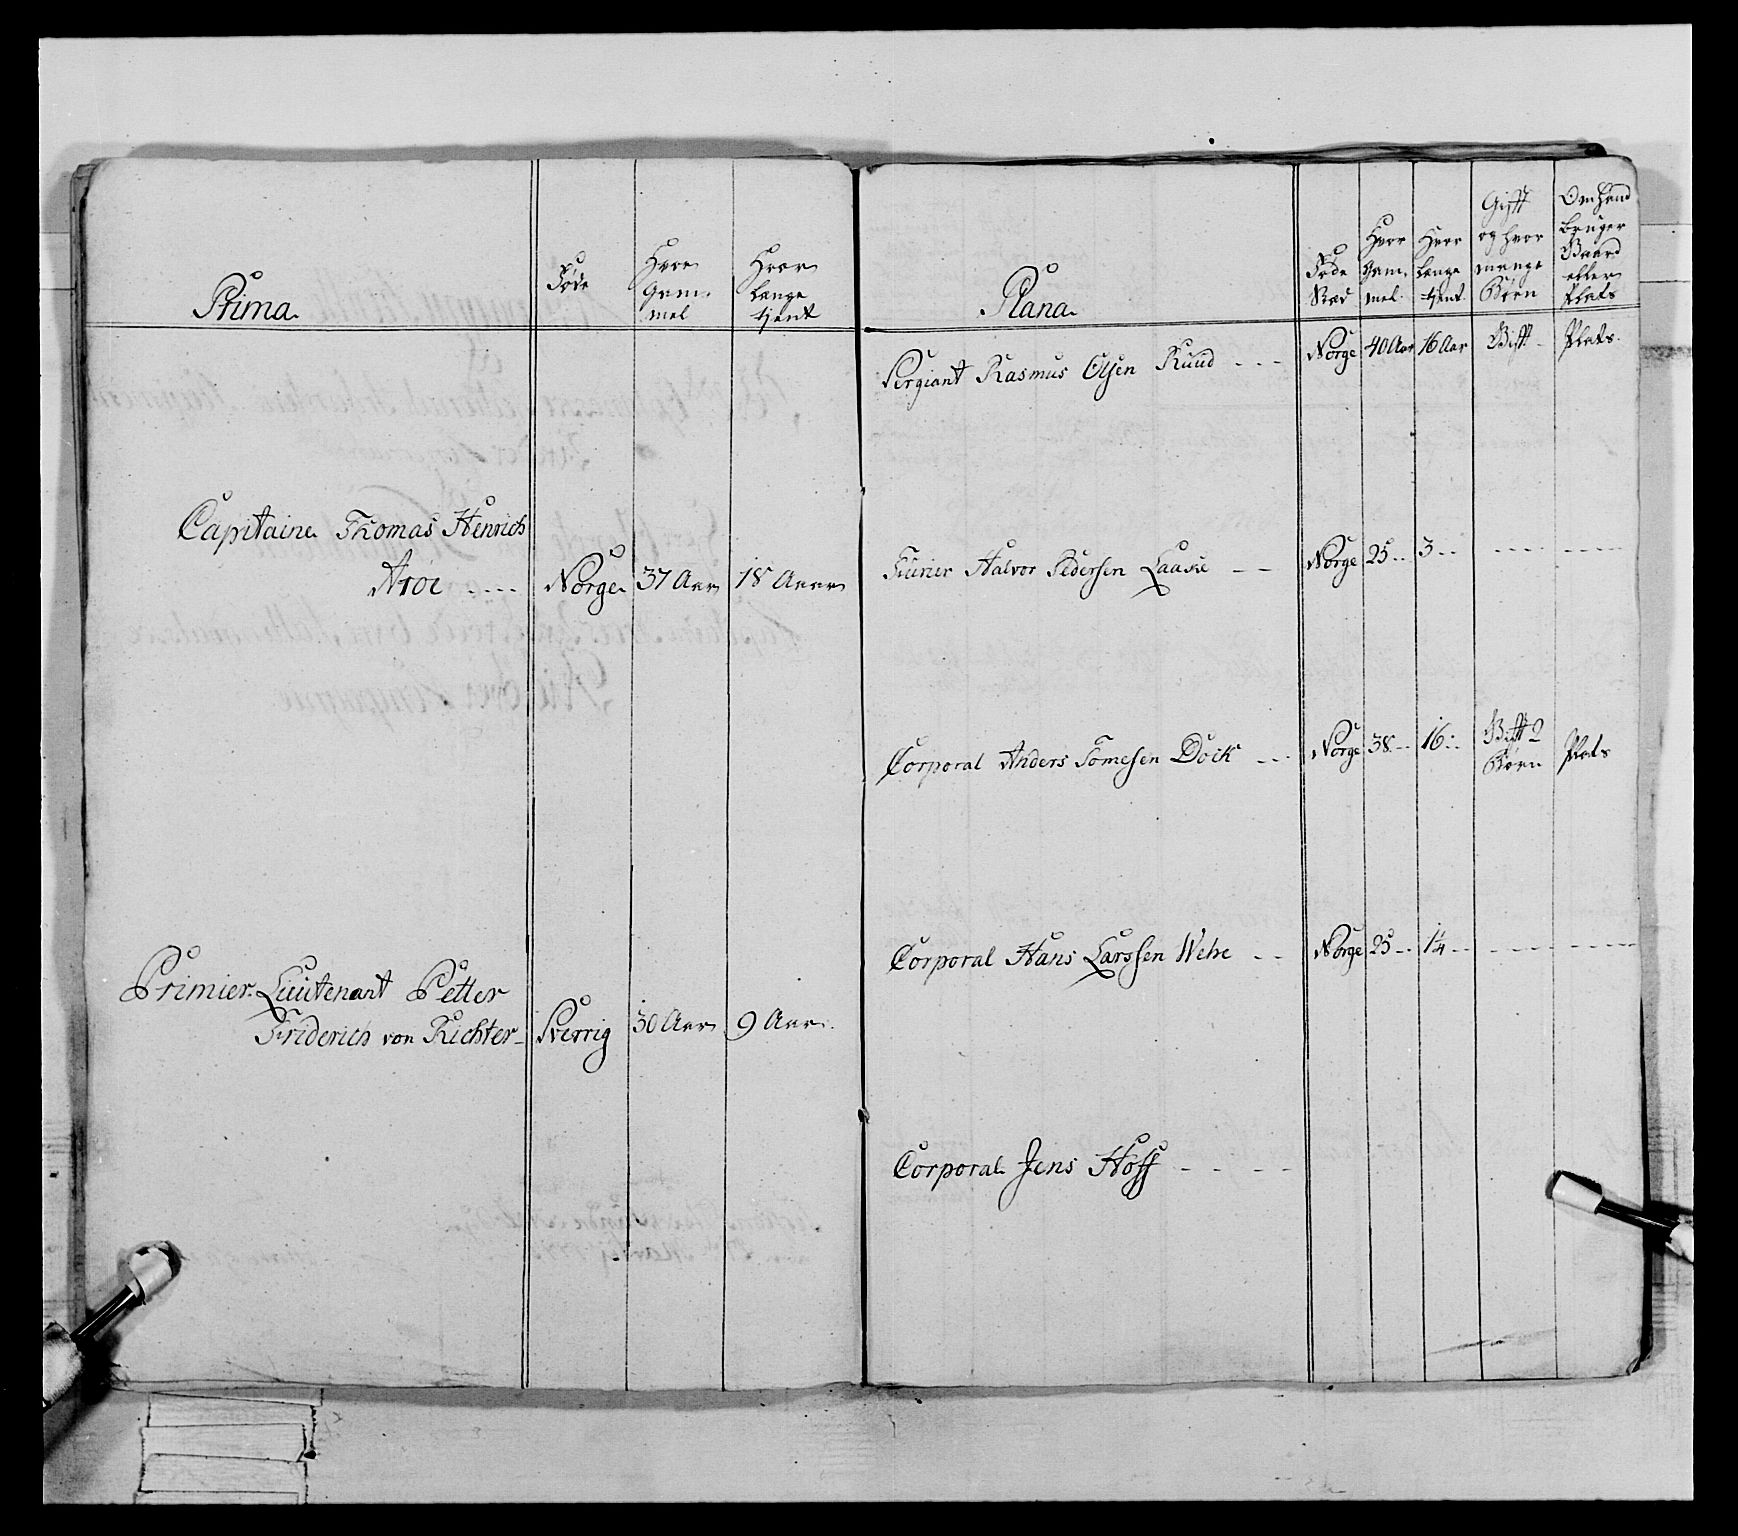 Prima.
Føde
Hvor
Gam-
mel
Hvor
Længe
tjent
Capitaine Thomas Henrich
Arøe .... Norge 37 Aar 18 Aar
Primier Lieutenant Petter
Friderich von Richter Sverrig 30 Aar 9 Aar.
Plana.
Føde
Stæd
Hvor
Gam-
mel.
Hvor
Længe
tjent.
Gift
og hvor
mange
Børn
Om hand
bruger
Gaard
eller
Plats
Sergiant Rasmus Olsen Ruud - - - Norge 40 Aar 16 Aar Gift - Plats.
Furier Halvor Pedersen Laake - - Norge 25 - - 3 - - - - - - - - - -
Corporal Anders Tomesen Dock - - - Norge 38 - - 16 - - Gift 2
Børn Plats
Corporal Hans Larssen Wehe - - Norge 25 - - 14 - - - - - - - - - -
Corporal Jens Hoff - - - -